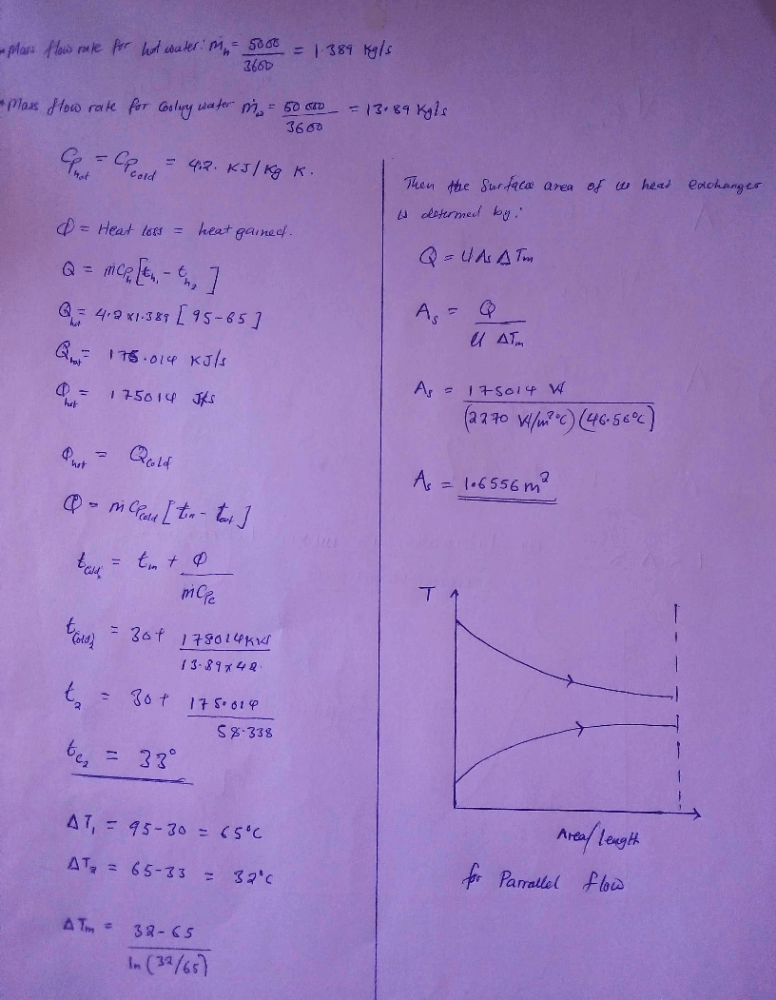 Mass flow rate for hot water: ṁh = 5000/3600 = 1.389 Kg/s
Mass flow rate for Cooling water ṁ = 50 000/3600 = 13.89 Kg/s
Cp hot = Cp cold = 4.2 KJ/Kg K.
Φ = Heat loss = heat gained.
Q = ṁCph [th1 - th2]
Qhot = 4.2 x 1.389 [95-65]
Qhot = 175.014 KJ/s
Φhot = 175014 J/s
Φhot = Qcold
Φ = ṁCpcold [tin - tout]
tcold2 = tin + Φ/ṁCpc
t(cold)2 = 30 + 175014KW/13.89x42
t2 = 30 + 175.014/58.338
tc2 = 33°
ΔT1 = 95-30 = 65°C
ΔT2 = 65-33 = 32°C
ΔTm = 32-65/ln(32/65)
Then the Surface area of heat exchanger
is determed by:
Q = UAs ΔTm
As = Q/U ΔTm
As = 175014 W/(2270 W/m²°C)(46.56°C)
As = 1.6556 m²
T
Area/length
for Parrallel flow